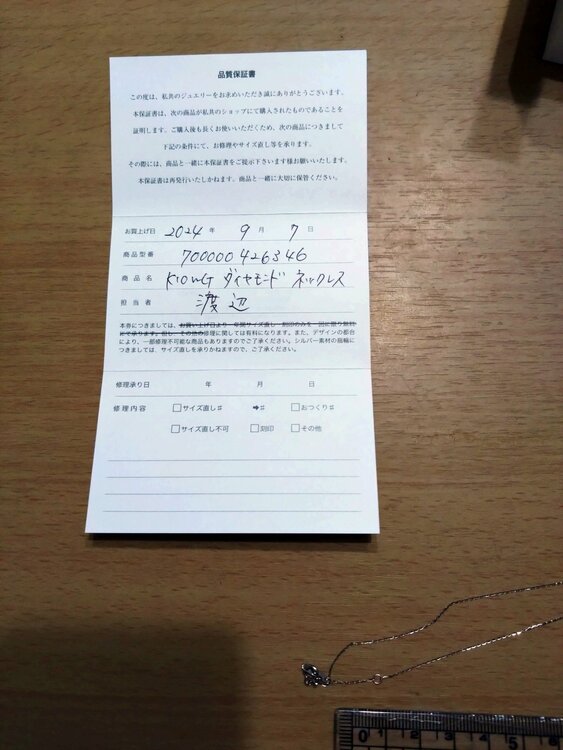 品質保証書
この度は、私共のジュエリーをお求めいただき誠にありがとうございます。
本保証書は、次の商品が私共のショップにて購入されたものであることを
証明します。ご購入後も長くお使いいただくため、次の商品につきまして
下記の条件にて、お修理やサイズ直し等を承ります。
その際には、商品と一緒に本保証書をご提示下さいます様お願いいたします。
本保証書は再発行いたしかねます。商品と一緒に大切に保管ください。
お買上げ日 2024 年 9 月 7 日
商品型番 700000426346
商品名 K10WG ダイヤモンド ネックレス
担当者 渡辺
本券につきましては、お買い上げ日より一年間サイズ直し・刻印のみを一回に限り無料
にて承ります。但し、その他の修理に関しては有料になります。また、デザインの都合
により、一部修理不可能な商品もありますのでご了承ください。シルバー素材の指輪に
つきましては、サイズ直しを承りかねますので、ご了承ください。
修理承り日 年 月 日
修理内容 □サイズ直し♯ ➡♯ □おつくり♯
□サイズ直し不可 □刻印 □その他
0 1 2 3 4 5 6